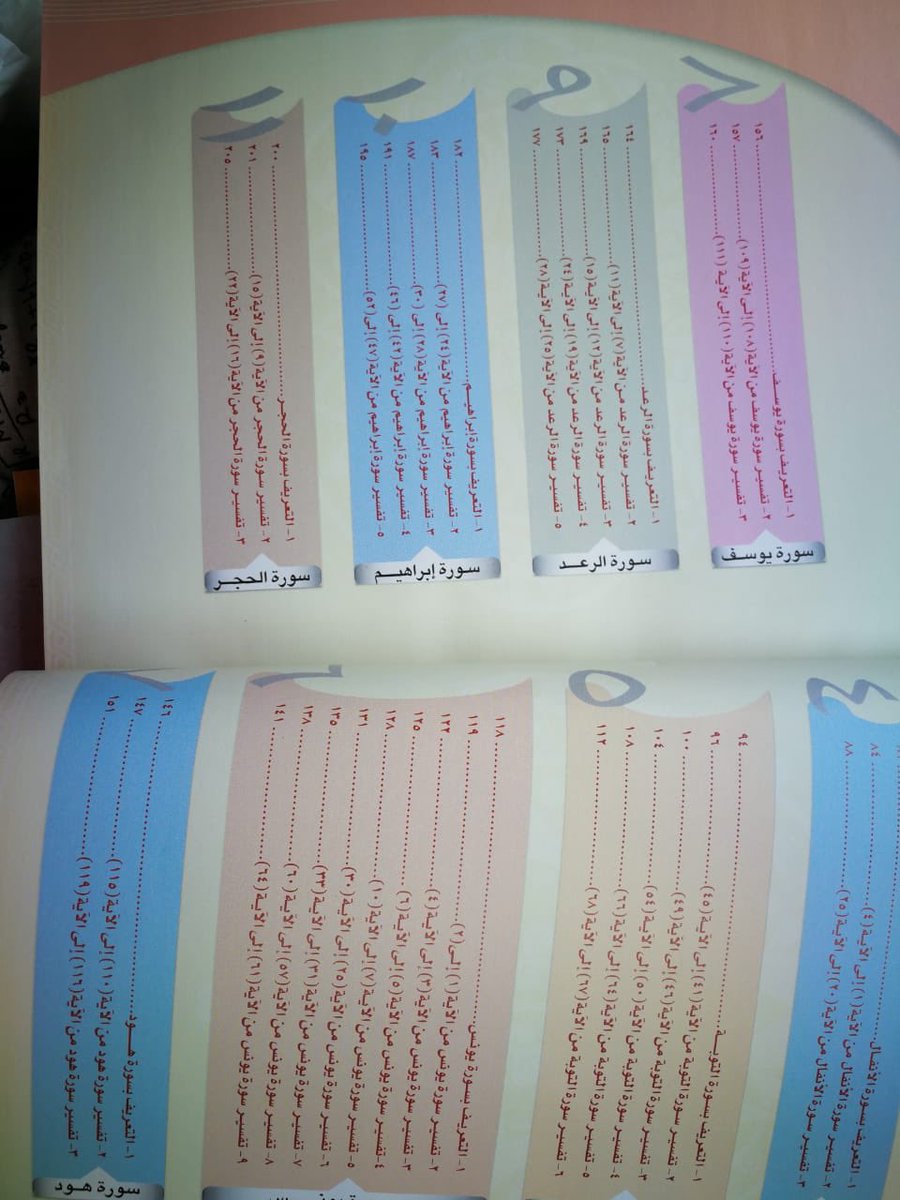 ٤
١- التعريف بسورة الأنفال
٢- تفسير سورة الأنفال من الآية (١) إلى الآية (٤) ٨٤
٣- تفسير سورة الأنفال من الآية (٢٠) إلى الآية (٢٥) ٨٨
٥
١- التعريف بسورة التوبة ٩٤
٢- تفسير سورة التوبة من الآية (٤١) إلى الآية (٤٥) ٩٦
٣- تفسير سورة التوبة من الآية (٤٦) إلى الآية (٤٩) ١٠٠
٤- تفسير سورة التوبة من الآية (٥٠) إلى الآية (٥٤) ١٠٤
٥- تفسير سورة التوبة من الآية (٦٤) إلى الآية (٦٦) ١٠٨
٦- تفسير سورة التوبة من الآية (٦٧) إلى الآية (٦٨) ١١٢
٦
١- التعريف بسورة يونس ١١٨
٢- تفسير سورة يونس من الآية (١) إلى (٢) ١١٩
٣- تفسير سورة يونس من الآية (٣) إلى الآية (٤) ١٢٢
٤- تفسير سورة يونس من الآية (٥) إلى الآية (٦) ١٢٥
٥- تفسير سورة يونس من الآية (٧) إلى الآية (١٠) ١٢٨
٦- تفسير سورة يونس من الآية (٢٥) إلى الآية (٣٠) ١٣١
٧- تفسير سورة يونس من الآية (٣١) إلى الآية (٣٣) ١٣٥
٨- تفسير سورة يونس من الآية (٥٧) إلى الآية (٦٠) ١٣٨
٩- تفسير سورة يونس من الآية (٦١) إلى الآية (٦٤) ١٤١
٧
سورة هود
١- التعريف بسورة هود ١٤٦
٢- تفسير سورة هود من الآية (١١٠) إلى الآية (١١٥) ١٤٧
٣- تفسير سورة هود من الآية (١١٦) إلى الآية (١١٩) ١٥١
٨
سورة يوسف
١- التعريف بسورة يوسف ١٥٦
٢- تفسير سورة يوسف من الآية (١٠٨) إلى الآية (١٠٩) ١٥٧
٣- تفسير سورة يوسف من الآية (١١٠) إلى الآية (١١١) ١٦٠
٩
سورة الرعد
١- التعريف بسورة الرعد ١٦٤
٢- تفسير سورة الرعد من الآية (٧) إلى الآية (١١) ١٦٥
٣- تفسير سورة الرعد من الآية (١٢) إلى الآية (١٥) ١٦٩
٤- تفسير سورة الرعد من الآية (١٩) إلى الآية (٢٤) ١٧٣
٥- تفسير سورة الرعد من الآية (٢٥) إلى الآية (٢٨) ١٧٧
١٠
سورة إبراهيم
١- التعريف بسورة إبراهيم ١٨٢
٢- تفسير سورة إبراهيم من الآية (٢٤) إلى (٢٧) ١٨٣
٣- تفسير سورة إبراهيم من الآية (٢٨) إلى (٣٠) ١٨٧
٤- تفسير سورة إبراهيم من الآية (٤٢) إلى (٤٦) ١٩١
٥- تفسير سورة إبراهيم من الآية (٤٧) إلى (٥٢) ١٩٥
١١
سورة الحجر
١- التعريف بسورة الحجر ٢٠٠
٢- تفسير سورة الحجر من الآية (٩) إلى الآية (١٥) ٢٠١
٣- تفسير سورة الحجر من الآية إلى الآية (٢٢) ٢٠٥